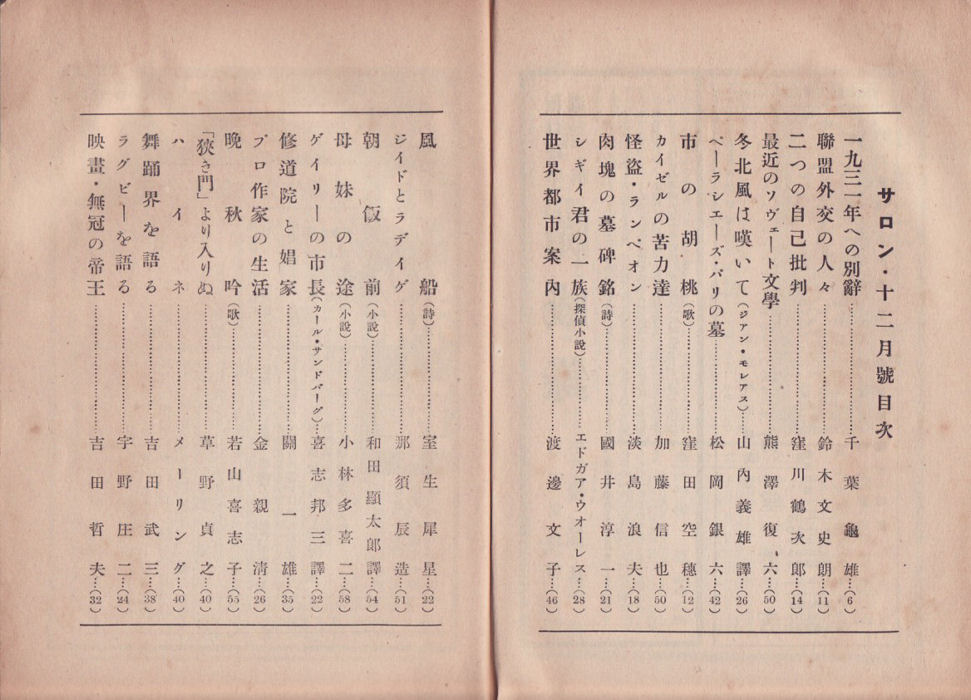 サロン・十二月號目次
一九三一年への別辭……千葉龜雄…(6)
聯盟外交の人々……鈴木文史朗…(11)
二つの自己批判……窪川鶴次郎…(14)
最近のソヴェート文學……熊澤復六…(50)
冬北風は嘆いて(ジアン・モレアス)……山內義雄譯…(26)
ペーラシエーズ・パリの墓……松岡銀六…(42)
市の胡桃(歌)……窪田空穗…(12)
カイゼルの苦力達……加藤信也…(50)
怪盜・ランペオン……淡島浪夫…(18)
肉塊の墓碑銘(詩)……國井淳一…(21)
シギイ君の一族(探偵小說)……エドガア・ウオーレス…(28)
世界都市案內……渡邊文子…(46)
風船(詩)……室生犀星…(22)
ジイドとラデイゲ……那須辰造…(51)
朝飯前(小說)……和田顯太郎譯…(54)
母妹の途(小說)……小林多喜二…(58)
ゲイリーの市長(カール・サンドバーグ)……喜志邦三譯…(22)
修道院と娼家……關一雄…(35)
プロ作家の生活……金親淸…(26)
晩秋吟(歌)……若山喜志子…(55)
「狹き門」より入りぬ……草野貞之…(40)
ハイネ……メーリング…(40)
舞踊界を語る……吉田武三…(38)
ラグビーを語る……宇野庄二…(24)
映畫・無冠の帝王……吉田哲夫…(32)